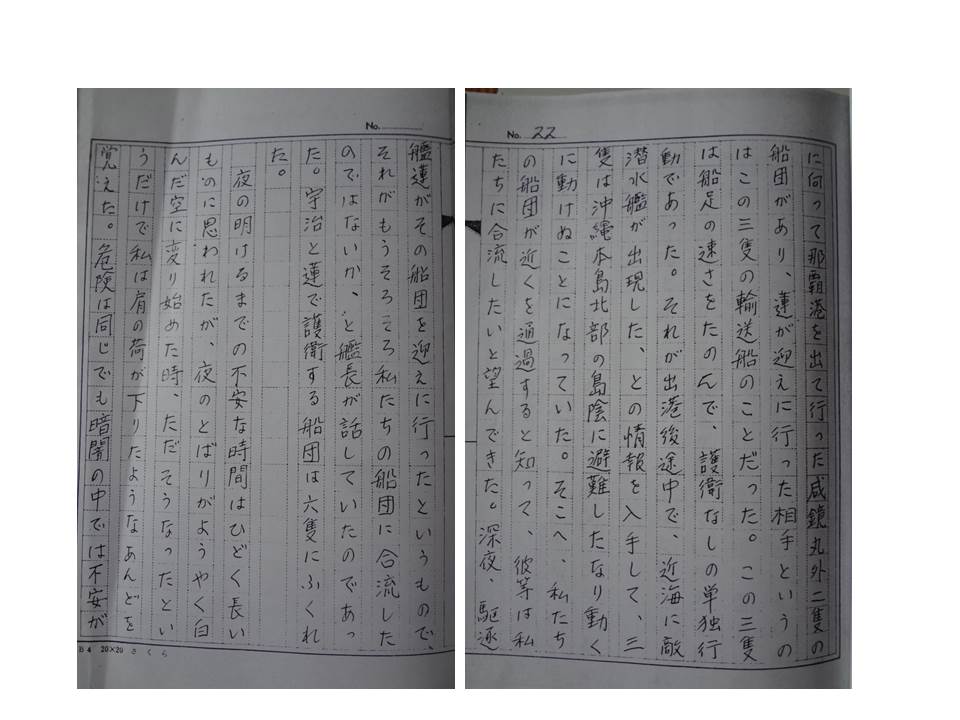 No. 22
に向って那覇港を出て行った咸鏡丸外二隻の
船団があり、蓮が迎えに行った相手というの
はこの三隻の輸送船のことだった。この三隻
は船足の速さをたのんで、護衛なしの単独行
動であった。それが出港後途中で、近海に敵
潜水艦が出現した、との情報を入手して、三
隻は沖縄本島北部の島陰に避難したなり動く
に動けぬことになっていた。そこへ、私たち
の船団が近くを通過すると知って、彼等は私
たちに合流したいと望んできた。深夜、駆逐
No.
艦蓮がその船団を迎えに行ったというもので、
それがもうそろそろ私たちの船団に合流した
のではないか、と艦長が話していたのであっ
た。宇治と蓮で護衛する船団は六隻にふくれ
た。
夜の明けるまでの不安な時間はひどく長い
ものに思われたが、夜のとばりがようやく白
んだ空に変り始めた時、ただそうなったとい
うだけで私は肩の荷が下りたようなあんどを
覚えた。危険は同じでも暗闇の中では不安が
B4 20×20 さくら